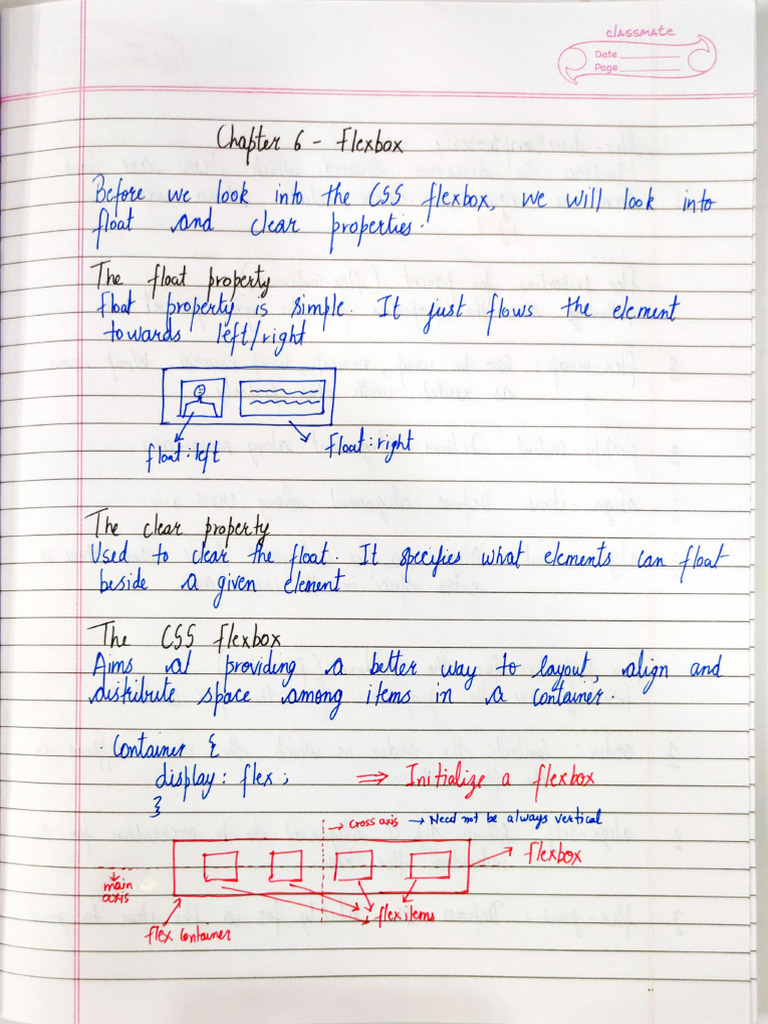 classmate
Date
Page
Chapter 6 - Flexbox
Before we look into the CSS flexbox, we will look into
float and clear properties.
The float property
Float property is simple. It just flows the element
towards left/right
float:left
Float:right
The clear property
Used to clear the float. It specifies what elements can float
beside a given element
The CSS flexbox
Aims at providing a better way to layout, align and
distribute space among items in a container.
.Container {
display: flex; ⇒ Initialize a flexbox
}
→ Cross axis → Need not be always vertical
→ flexbox
main
axis
flex items
flex container